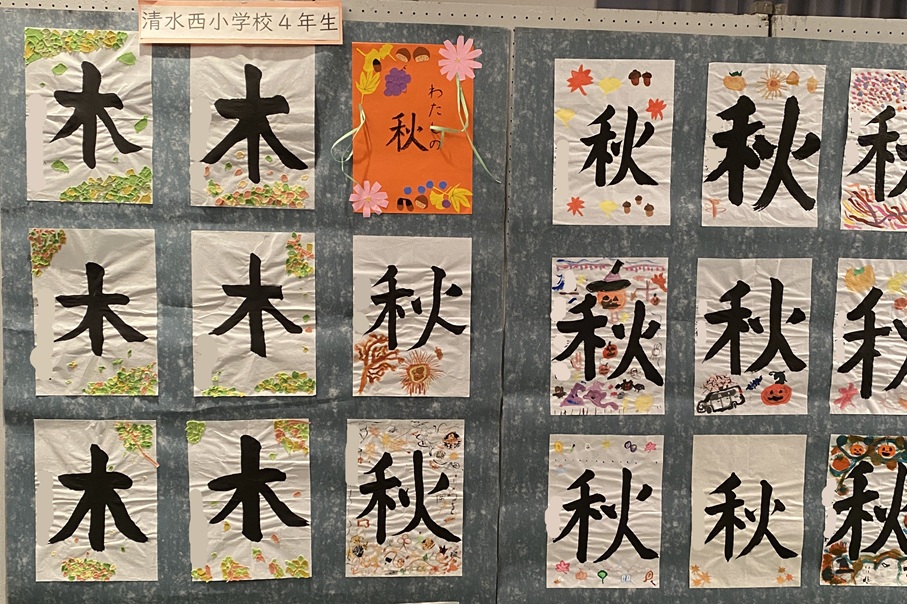 清水西小学校4年生
木
木
わたしの
秋
木
木
秋
木
木
秋
秋
秋
秋
秋
秋
秋
秋
秋
秋